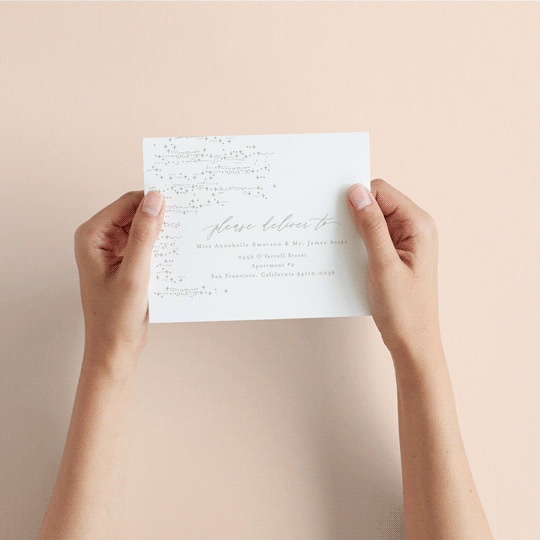 please deliver to
Miss Annabelle Emerson & Mr. James Astor
O'Farrell Street
Apartment
San Francisco, California